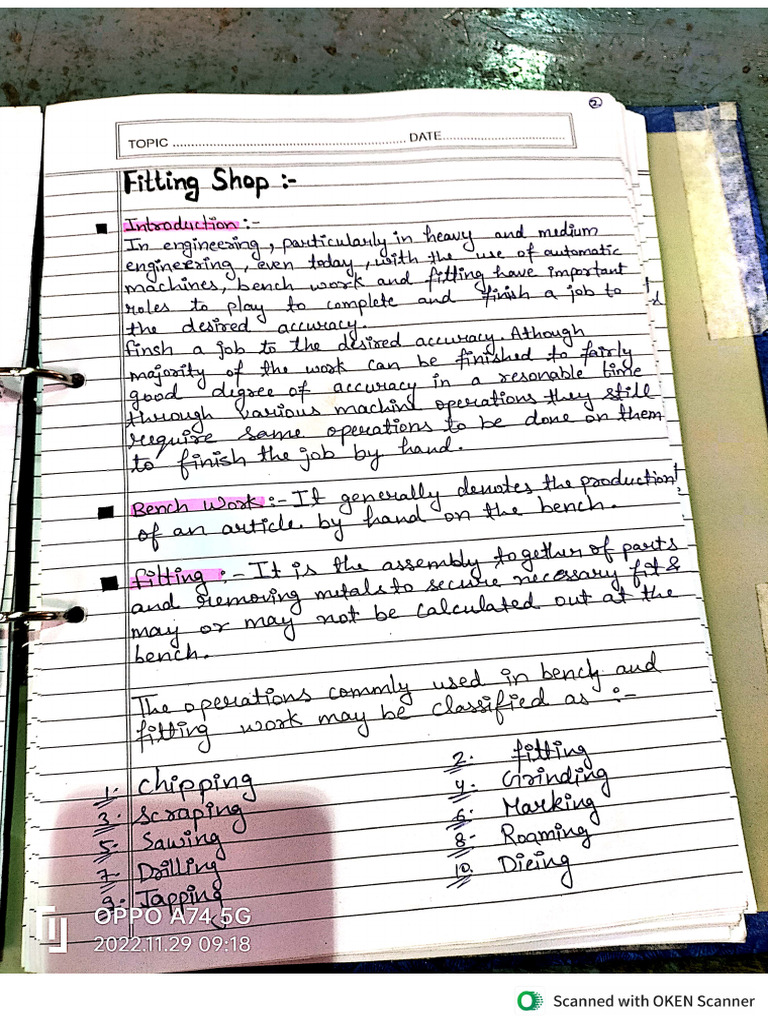 2
TOPIC ........................ DATE........................
Fitting Shop :-
Introduction :-
In engineering, particularly in heavy and medium
engineering, even today, with the use of automatic
machines, bench work and fitting have important
roles to play to complete and finish a job to
the desired accuracy.
finsh a job to the desired accuracy. Athough
majority of the work can be finished to fairly
good degree of accuracy in a resonable time
through various machine operations they still
require some operations to be done on them
to finish the job by hand.
Bench Work :- It generally denotes the production
of an article by hand on the bench.
fitting :- It is the assembly together of parts
and removing metals to secure necessary fit &
may or may not be calculated out at the
bench.
The operations commly used in bench and
fitting work may be classified as :-
1. Chipping
2. fitting
3. Scraping
4. Grinding
5. Sawing
6. Marking
7. Drilling
8- Roaming
9. Tapping
10. Dieing
OPPO A74 5G
2022.11.29 09:18
Scanned with OKEN Scanner